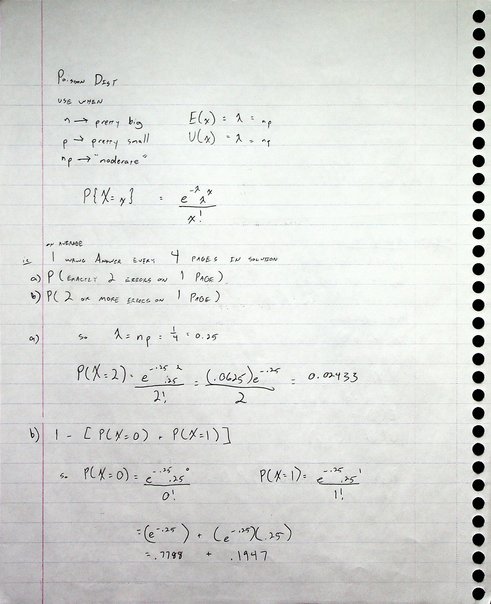 Poisson Dist
use when
n → pretty big E(x) = λ = np
p → pretty small V(x) = λ = np
np → "moderate"
P{X=x} = e^-λ λ^x / x!
on average
ie 1 wrong answer every 4 pages in solution
a) P(exactly 2 errors on 1 page)
b) P(2 or more errors on 1 page)
a) so λ = np = 1/4 = 0.25
P(X=2) = e^-.25 .25^2 / 2! = (.0625)e^-.25 / 2 = 0.02433
b) 1 - [P(X=0) + P(X=1)]
so P(X=0) = e^-.25 .25^0 / 0! P(X=1) = e^-.25 .25^1 / 1!
=(e^-.25) + (e^-.25)(.25)
= .7788 + .1947